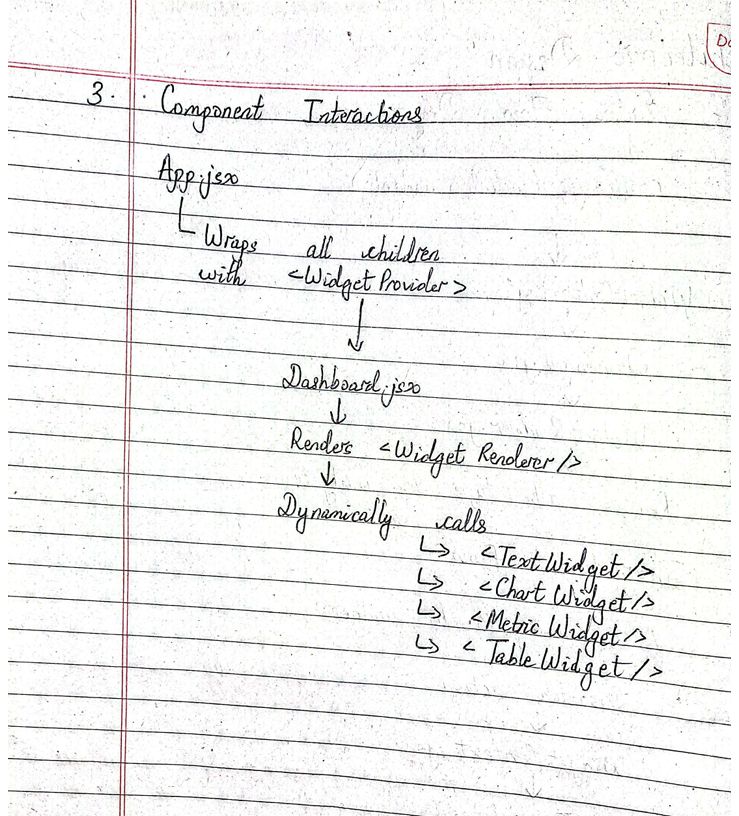 3. Component Interactions
App.jsx
Wraps all children
with <Widget Provider>
Dashboard.jsx
Renders <Widget Renderer/>
Dynamically calls
<Text Widget/>
<Chart Widget/>
<Metric Widget/>
<Table Widget/>